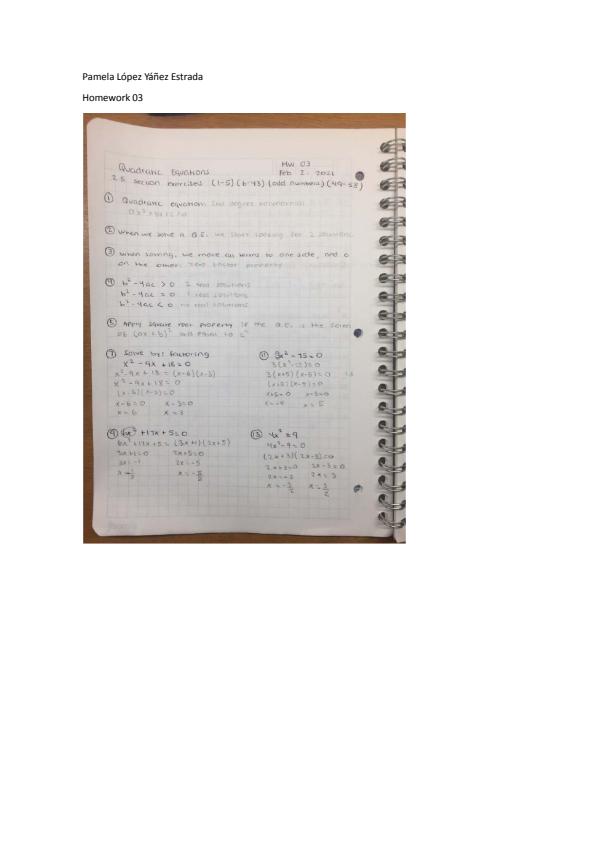 Pamela López Yáñez Estrada
Homework 03
HW 03
Quadratic Equations
Feb 2, 2021
2.5 section exercises (1-5) (6-43) (odd numbers) (49-58)
① Quadratic equation: 2nd degree polynomial
② When we solve a Q.E. we start looking for 2 solutions
③ When solving, we move all terms to one side, and 0
on the other. zero factor property
④ b² - 4ac > 0 2 real solutions
b² - 4ac = 0 1 real solutions
b² - 4ac < 0 no real solutions
⑤ Apply square root property if the Q.E. is the form
of (ax + b)² and equal to
⑦ Solve by: factoring
x² - 9x + 18 = 0
x² - 9x + 18 = (x-6)(x-3)
x² - 9x + 18 = 0
(x-6)(x-3)=0
x-6=0 x-3=0
x=6 x=3
⑪ 3x² - 75 = 0
3(x²-25)=0
3(x+5)(x-5)=0
(x+5)(x-5)=0
x+5=0 x-5=0
x=5
⑨ 6x² + 17x + 5 = 0
6x² + 17x + 5 = (3x+1)(2x+5)
3x+1=0 2x+5=0
3x=-1 2x=-5
x=-1/3 x=-5/2
⑬ 4x² = 9
4x² - 9 = 0
(2x+3)(2x-3)=0
2x+3=0 2x-3=0
2x=-3 2x=3
x=-3/2 x=3/2